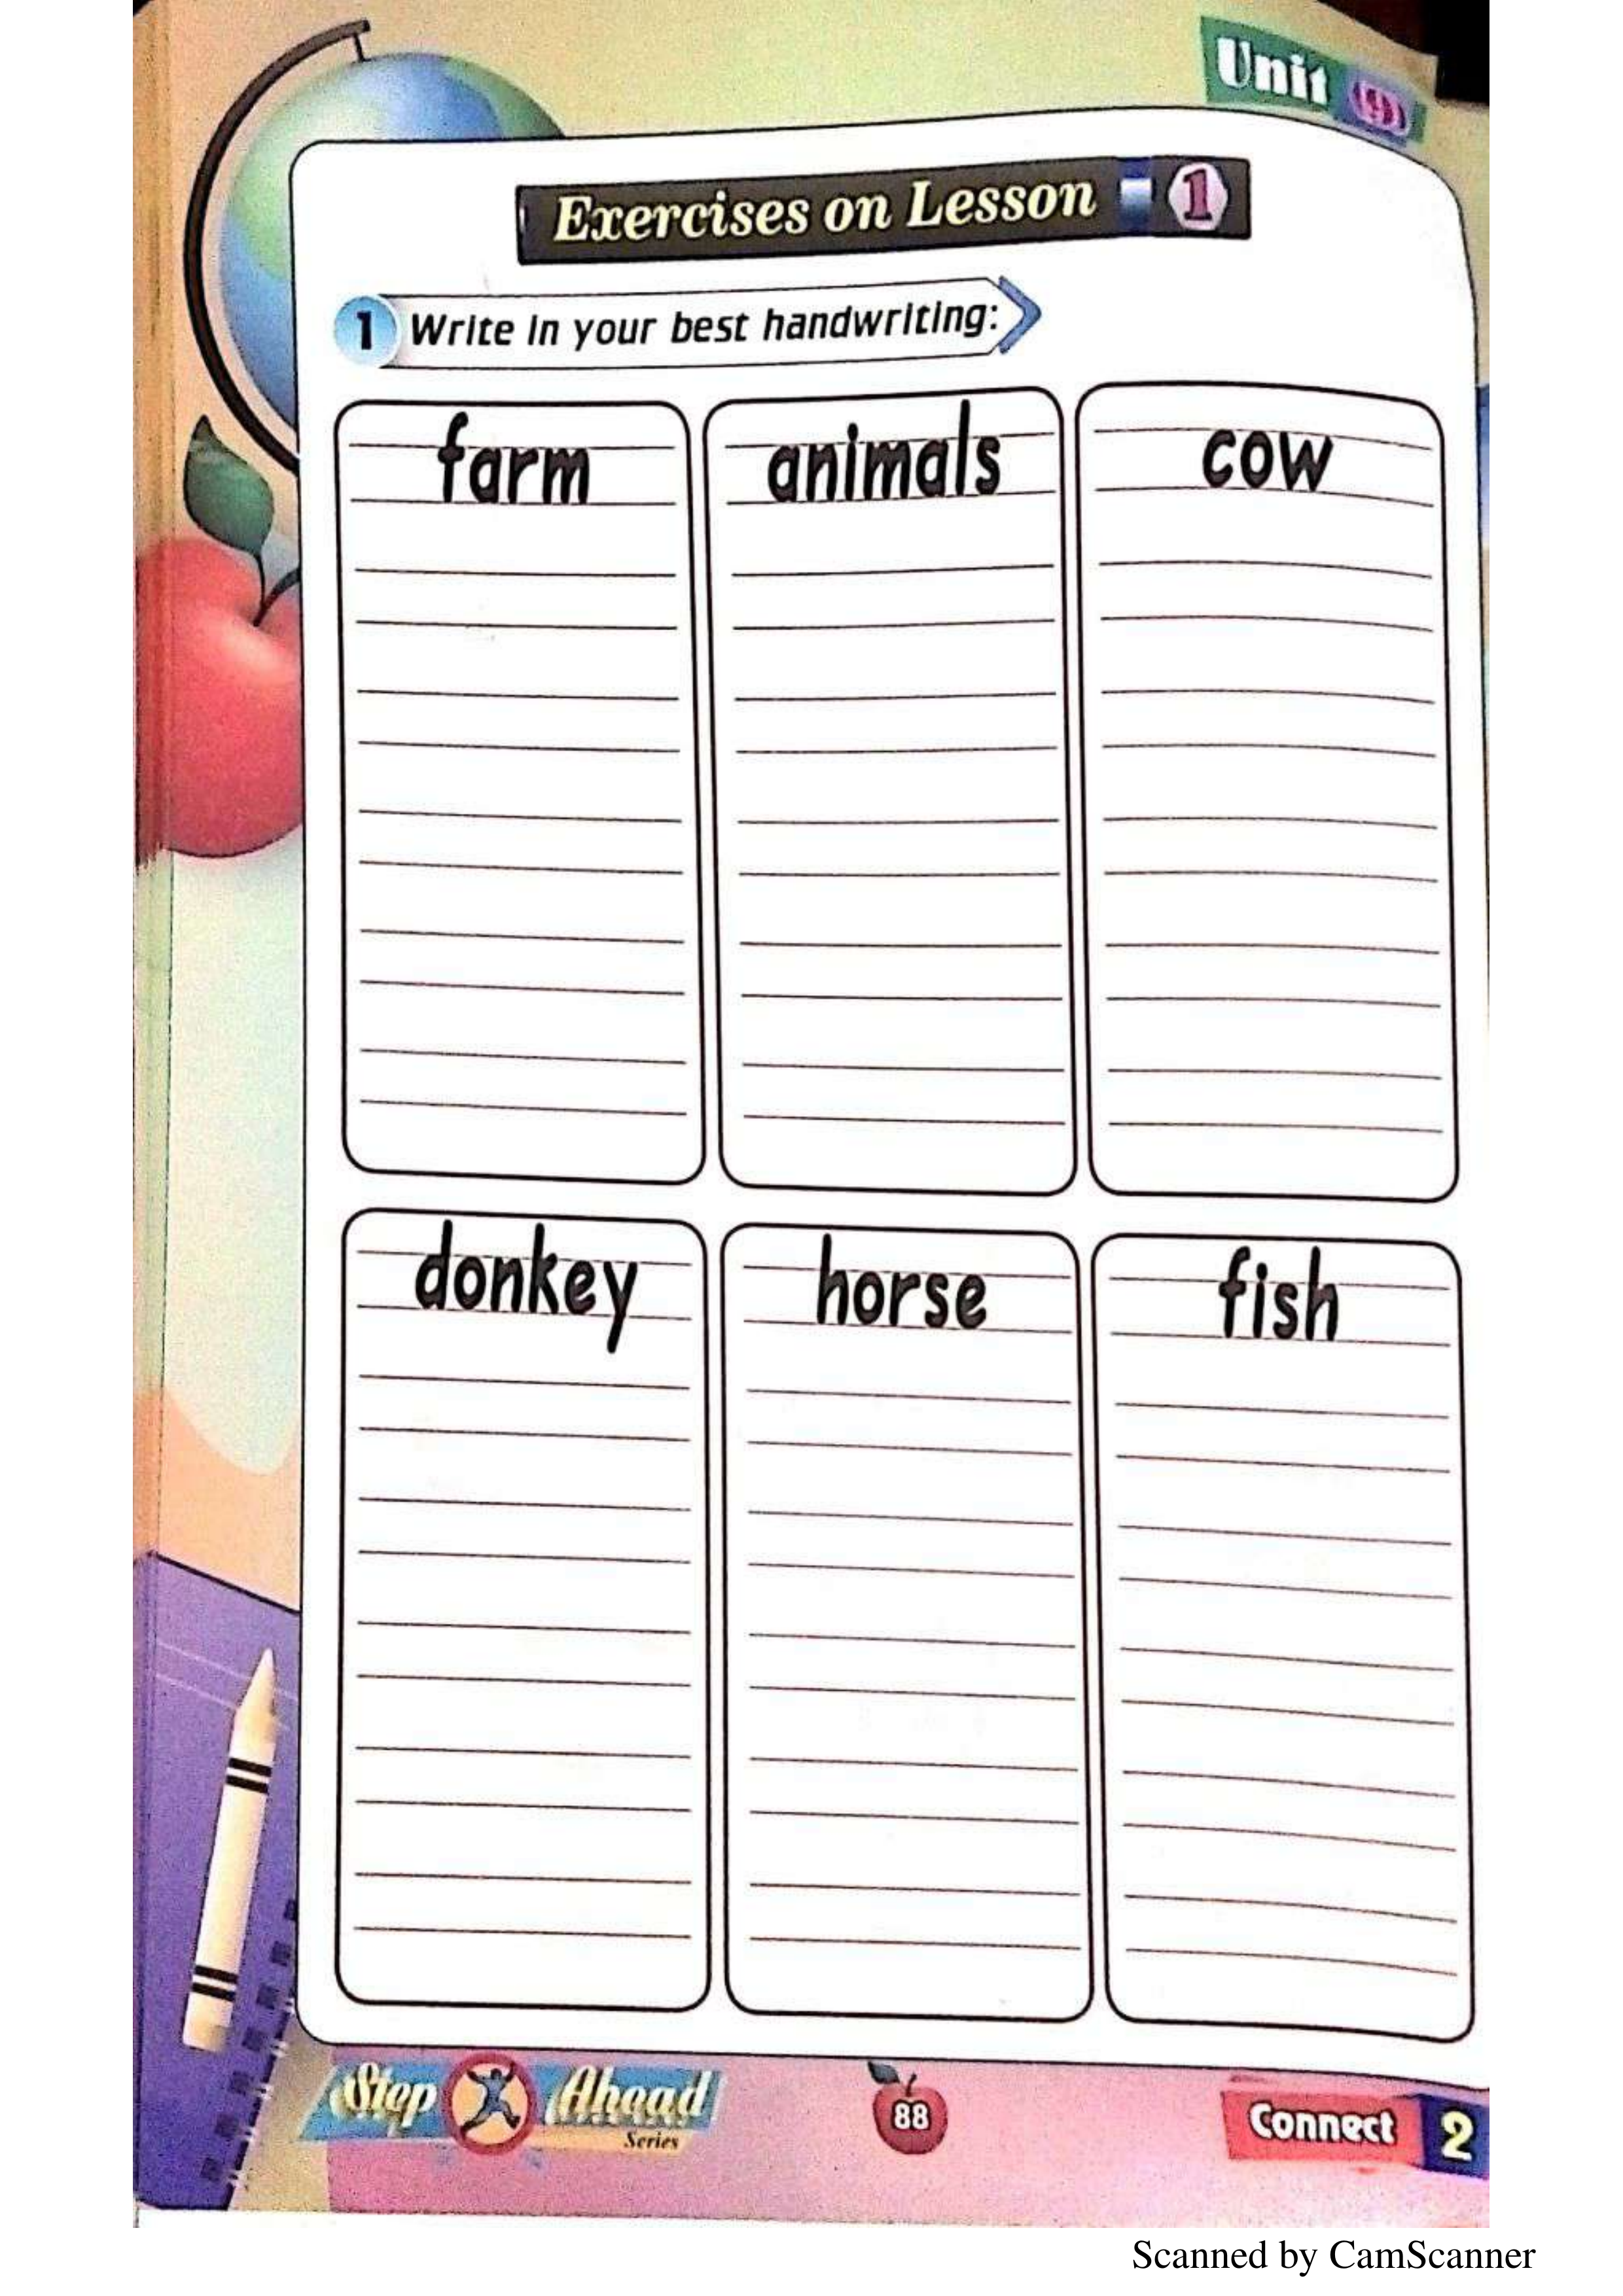 Unit (9)
Exercises on Lesson 1
1 Write in your best handwriting:
farm animals cow
donkey horse fish
Step Ahead
Series
88
Connect 2
Scanned by CamScanner